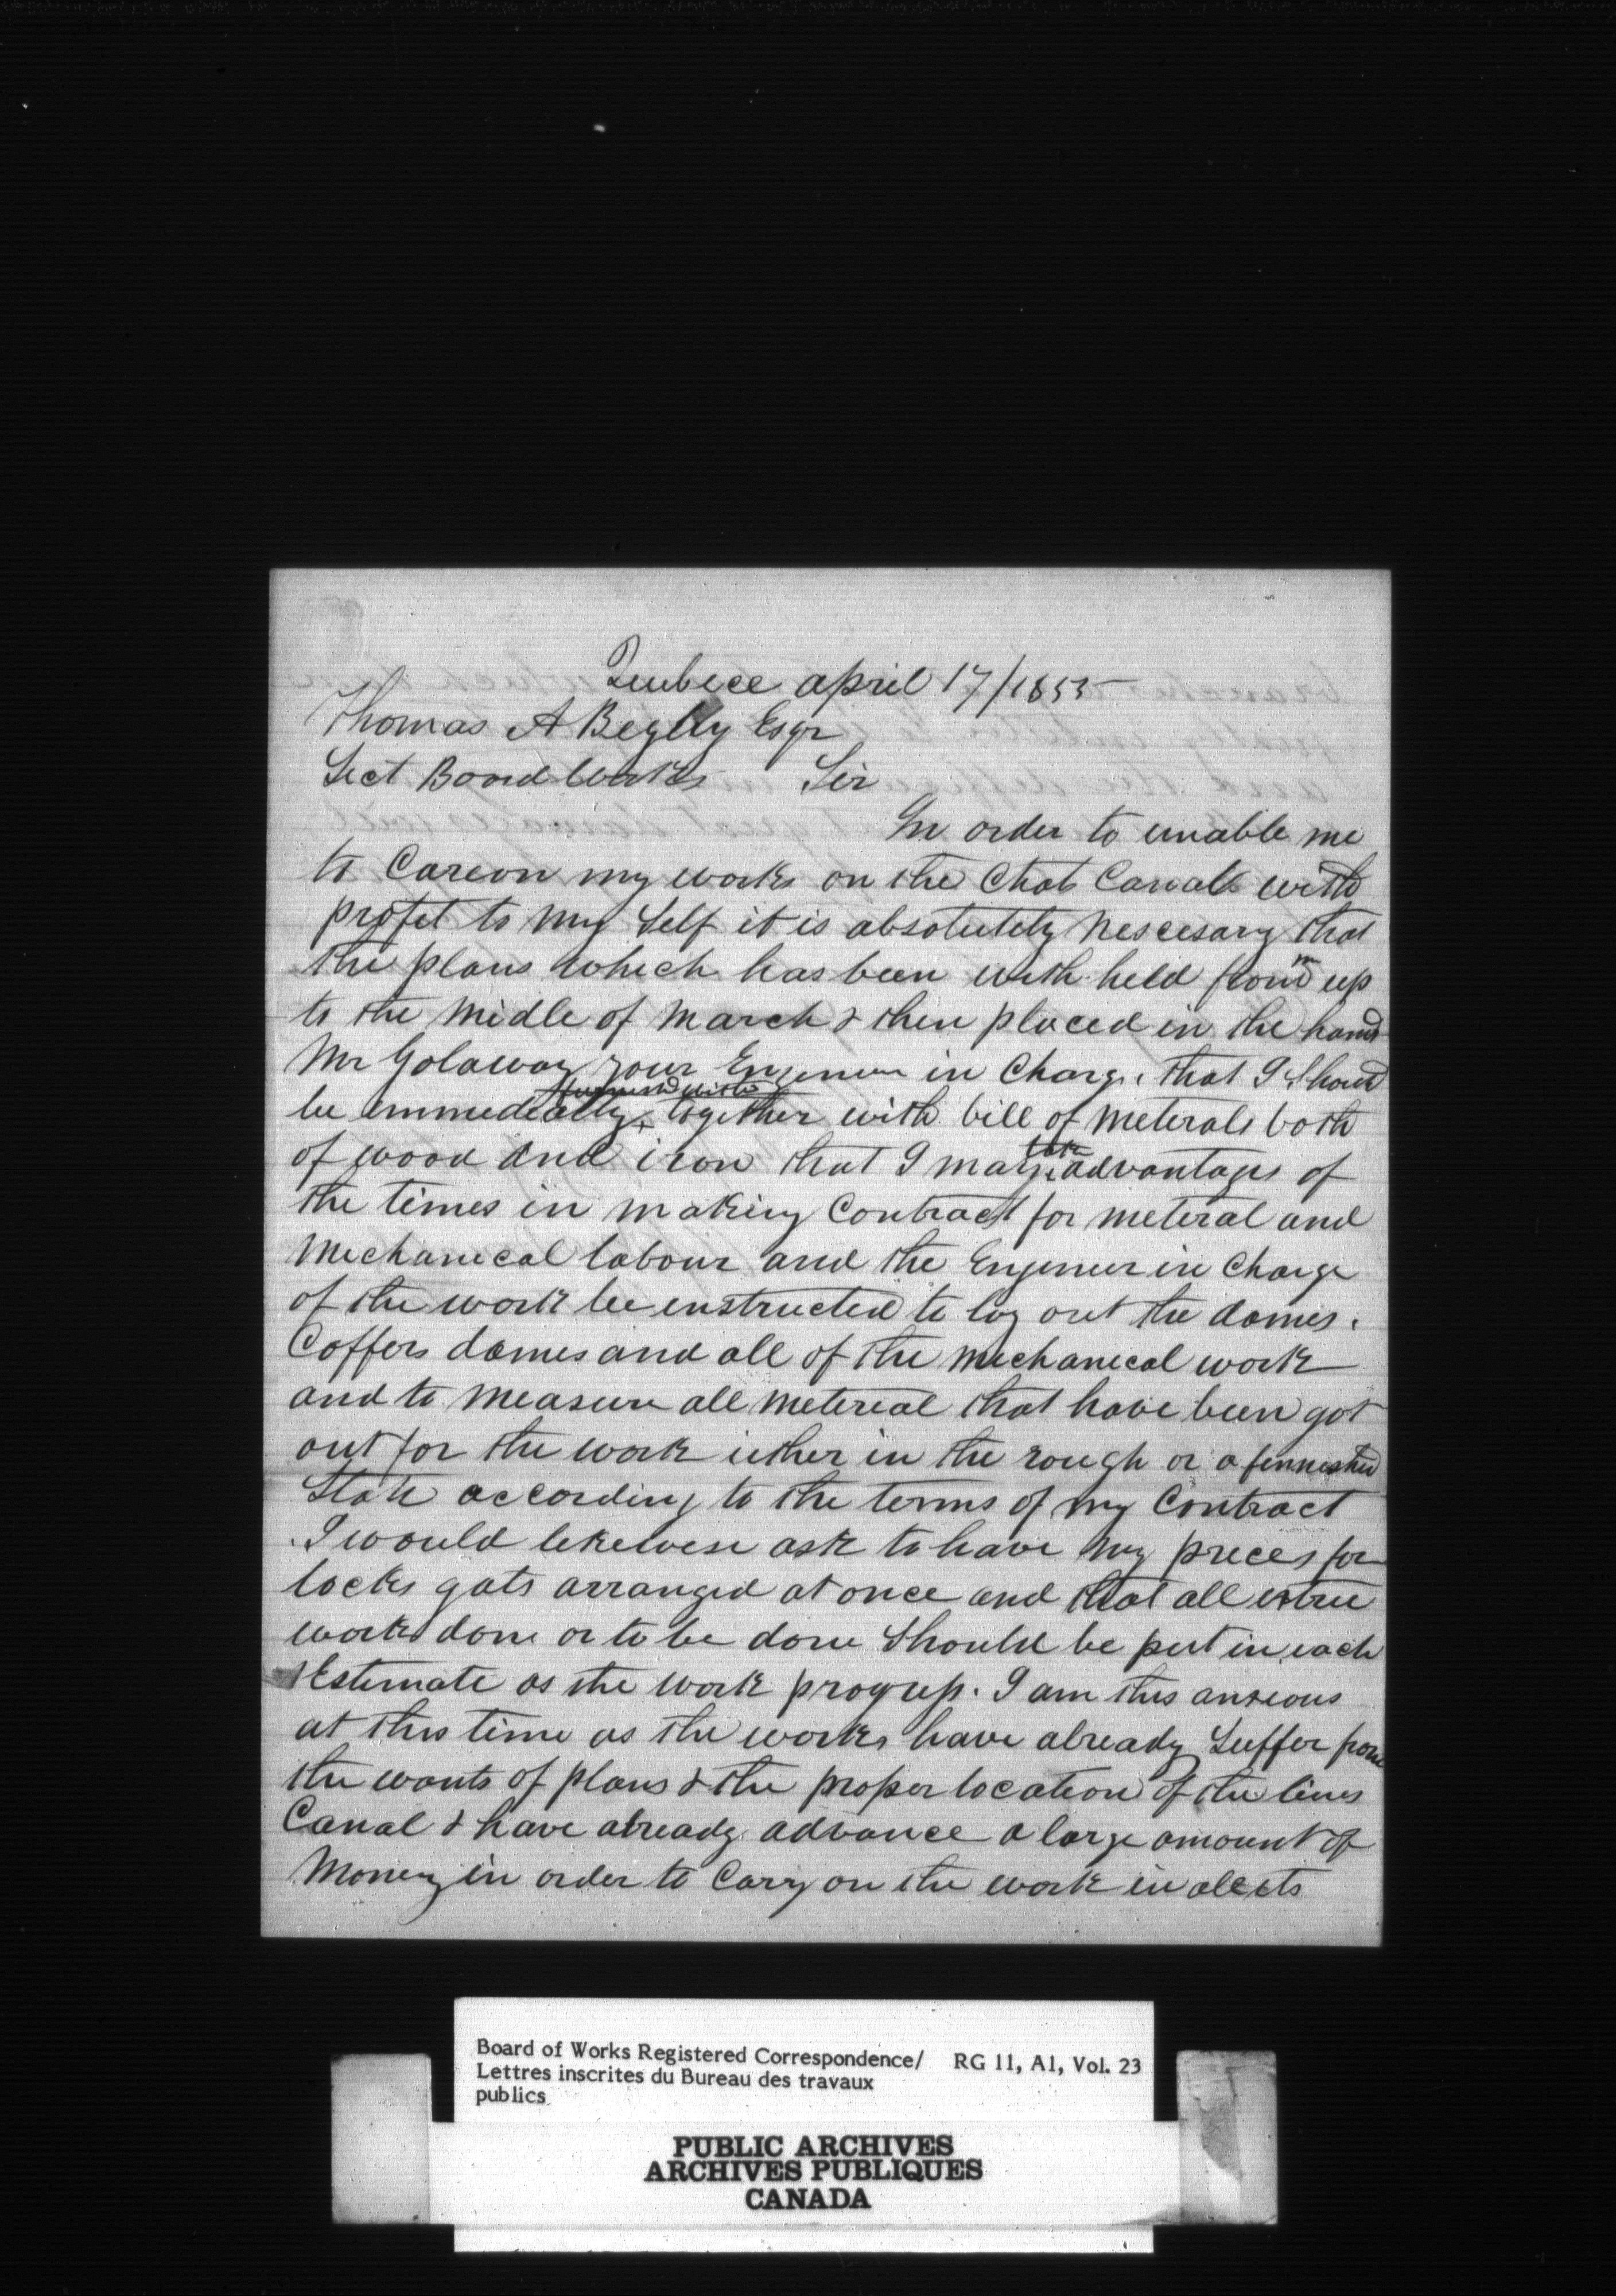 Quebece april 17/1855
Thomas A Beglly Esqr
Sect Board Works Sir
In order to unable me
to Careon my works on the Chats Canall with
profet to my Self it is absolutely nescesary that
the plans which has been with held from m up
to the midle of March & then placed in the hand
Mr Golaway your Engeneer in Charge, that I Should
be immedeatly furnished with together with bill of meterals both
of wood and iron that I may take advantages of
the times in making Contract for meteral and
Mechanecal labour and the Engeneer in Charge
of the work be enstructed to lay out the dames.
Coffers dames and all of the mechanecal work
and to measure all metereal that have been got
out for the work iether in the rough or a finneshed
State according to the terms of my Contract
I would lekewese ask to have my preces for
locks gats arranged at once and that all extree
works done or to be done Should be put in each
Estemate as the work progress. I am this anxeous
at this time as the works have already Suffer from
the wants of plans & the proper location of the lines
Canal & have already advance a large amount of
Money in order to Cary on the work in all its
Board of Works Registered Correspondence/ RG 11, A1, Vol. 23
Lettres inscrites du Bureau des travaux
publics
PUBLIC ARCHIVES
ARCHIVES PUBLIQUES
CANADA